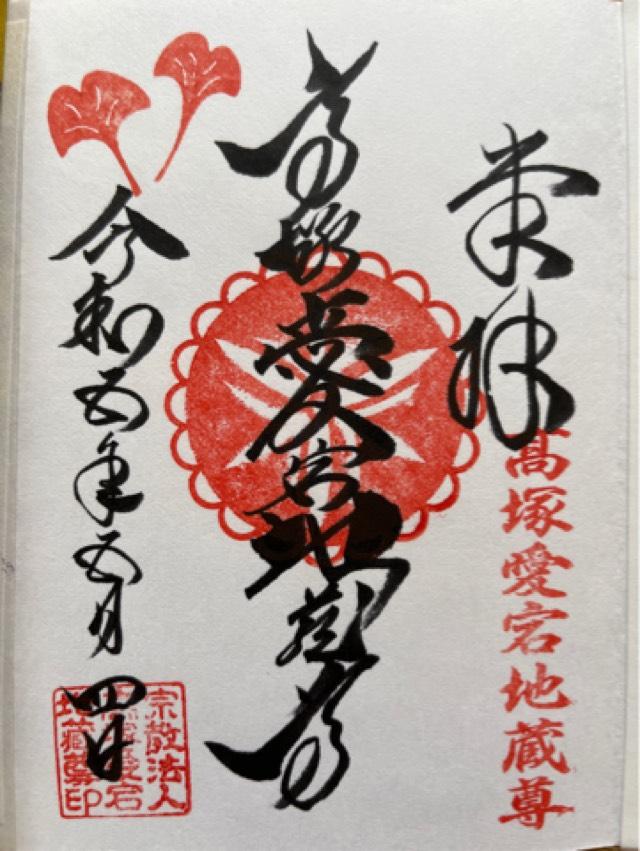 奉拝
髙塚愛宕地蔵尊
高塚愛宕地蔵尊
令和五年五月四日
宗教法人
高塚愛宕
地蔵尊印